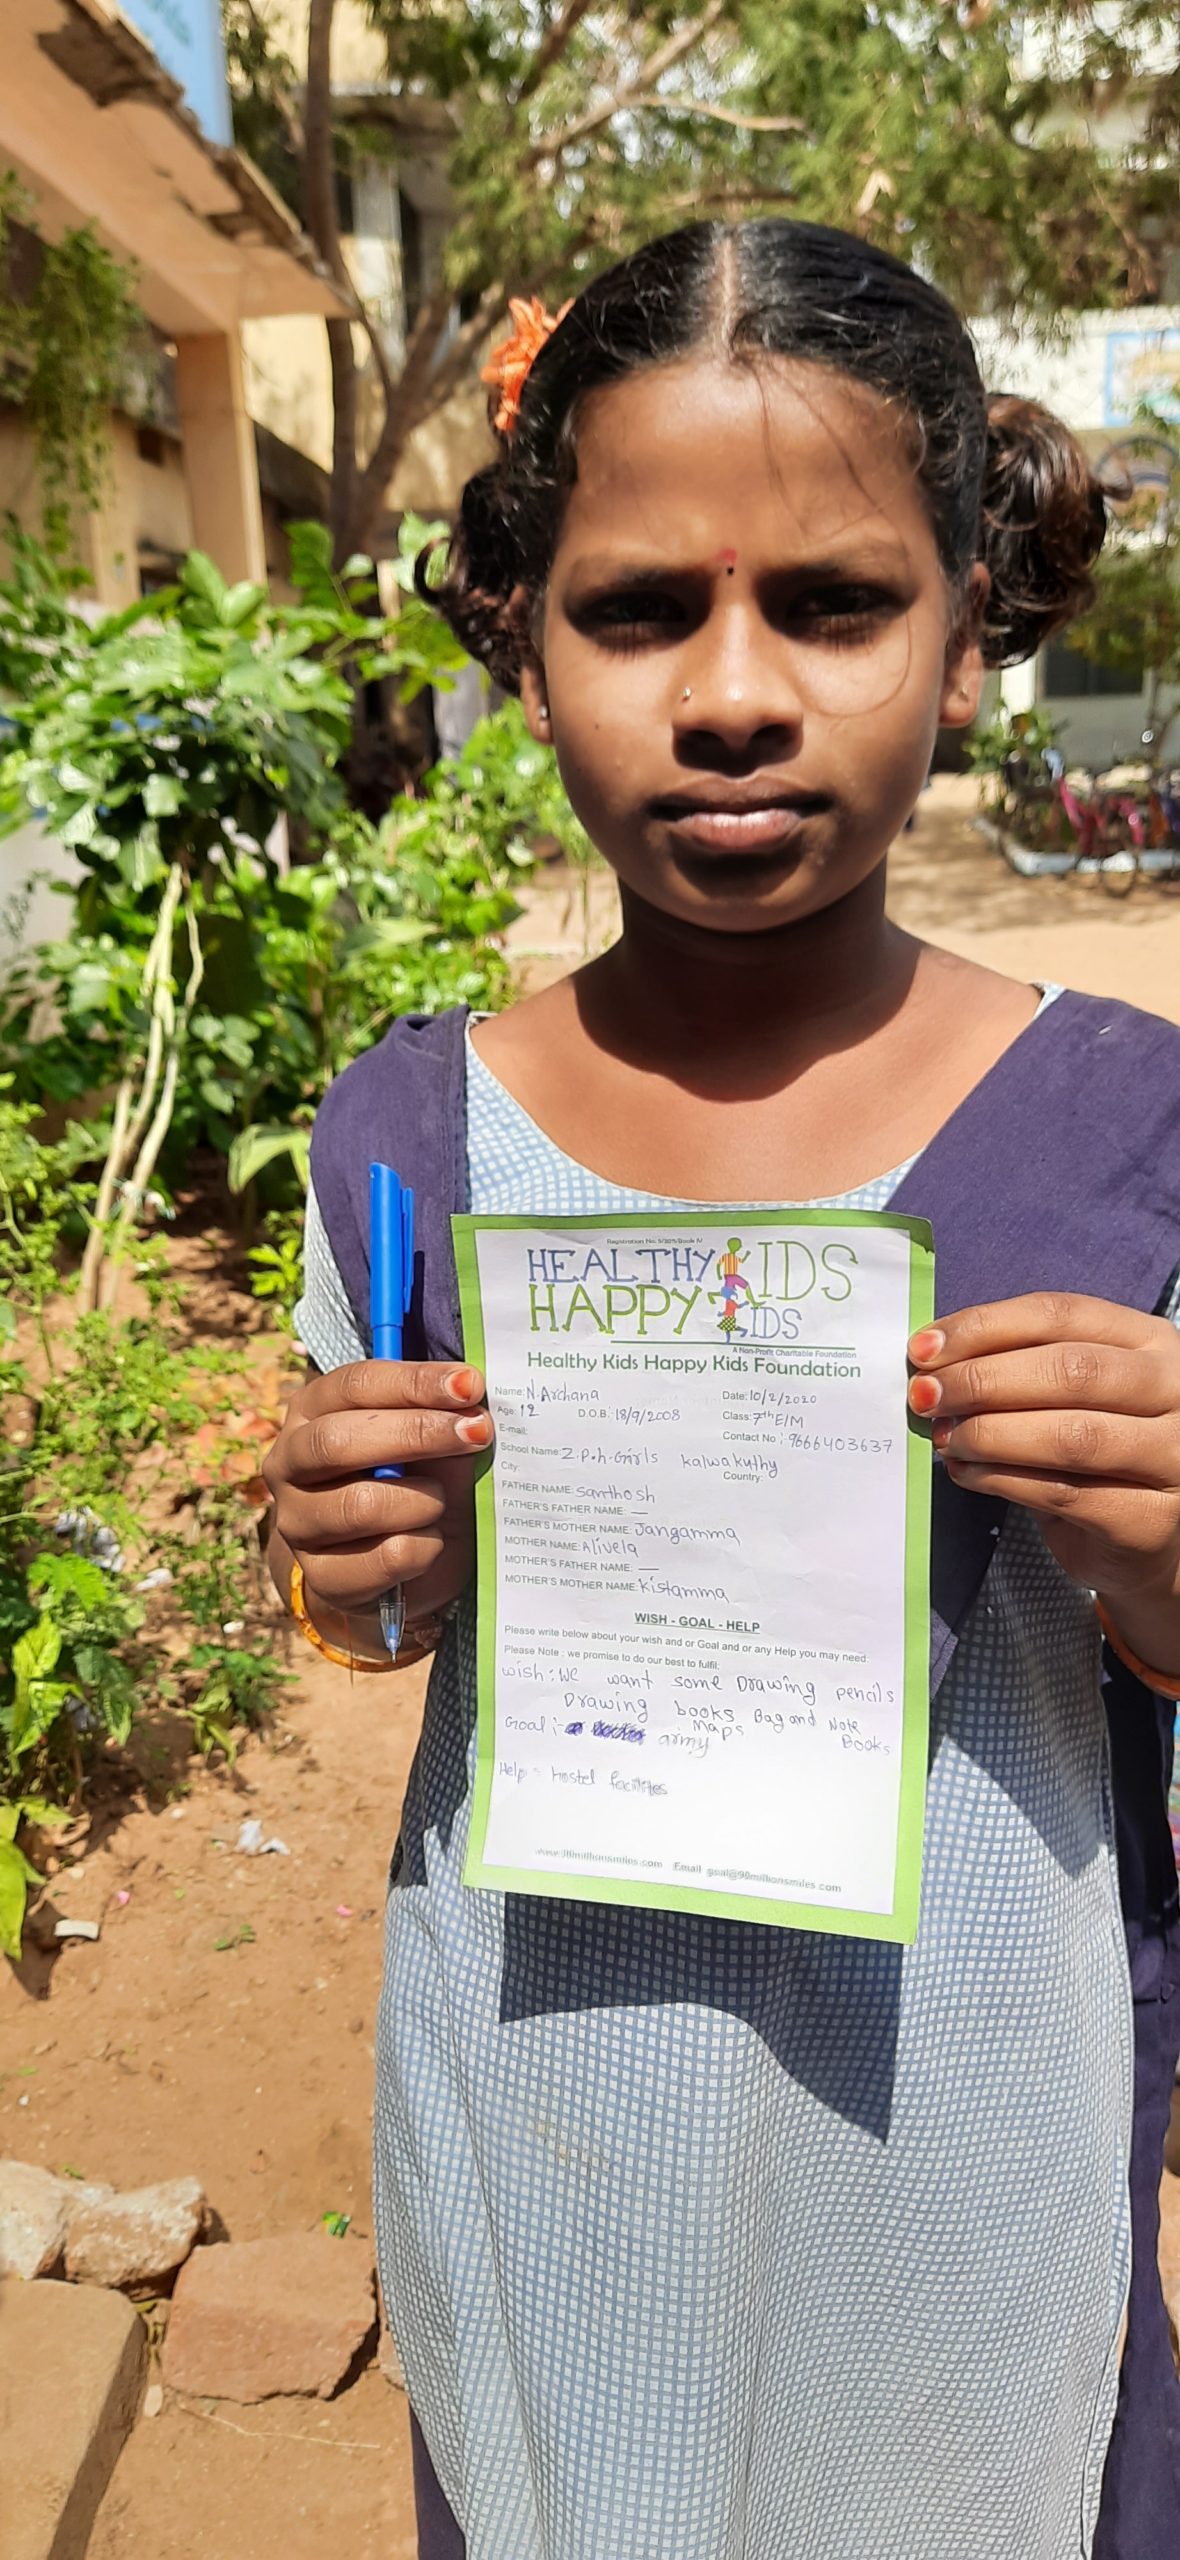 Registration No. 5/2015/Book IV
HEALTHY KIDS
HAPPY KIDS
A Non-Profit Charitable Foundation
Healthy Kids Happy Kids Foundation
Name: N. Archana Date: 10/2/2020
Age: 12 D.O.B: 18/9/2008 Class: 7th E/M
E-mail: Contact No: 9666403637
School Name: Z.P.h-Girls kalwakuthy
City: Country:
FATHER NAME: Santhosh
FATHER'S FATHER NAME: —
FATHER'S MOTHER NAME: Jangamma
MOTHER NAME: Alivela
MOTHER'S FATHER NAME: —
MOTHER'S MOTHER NAME: Kistamma
WISH - GOAL - HELP
Please write below about your wish and or Goal and or any Help you may need:
Please Note : we promise to do our best to fulfil:
wish: We want some Drawing pencils
Drawing books Bag and Note
Books
Maps
Goal :- army
Help - Hostel facilites
Email goal@90millionsmiles.com